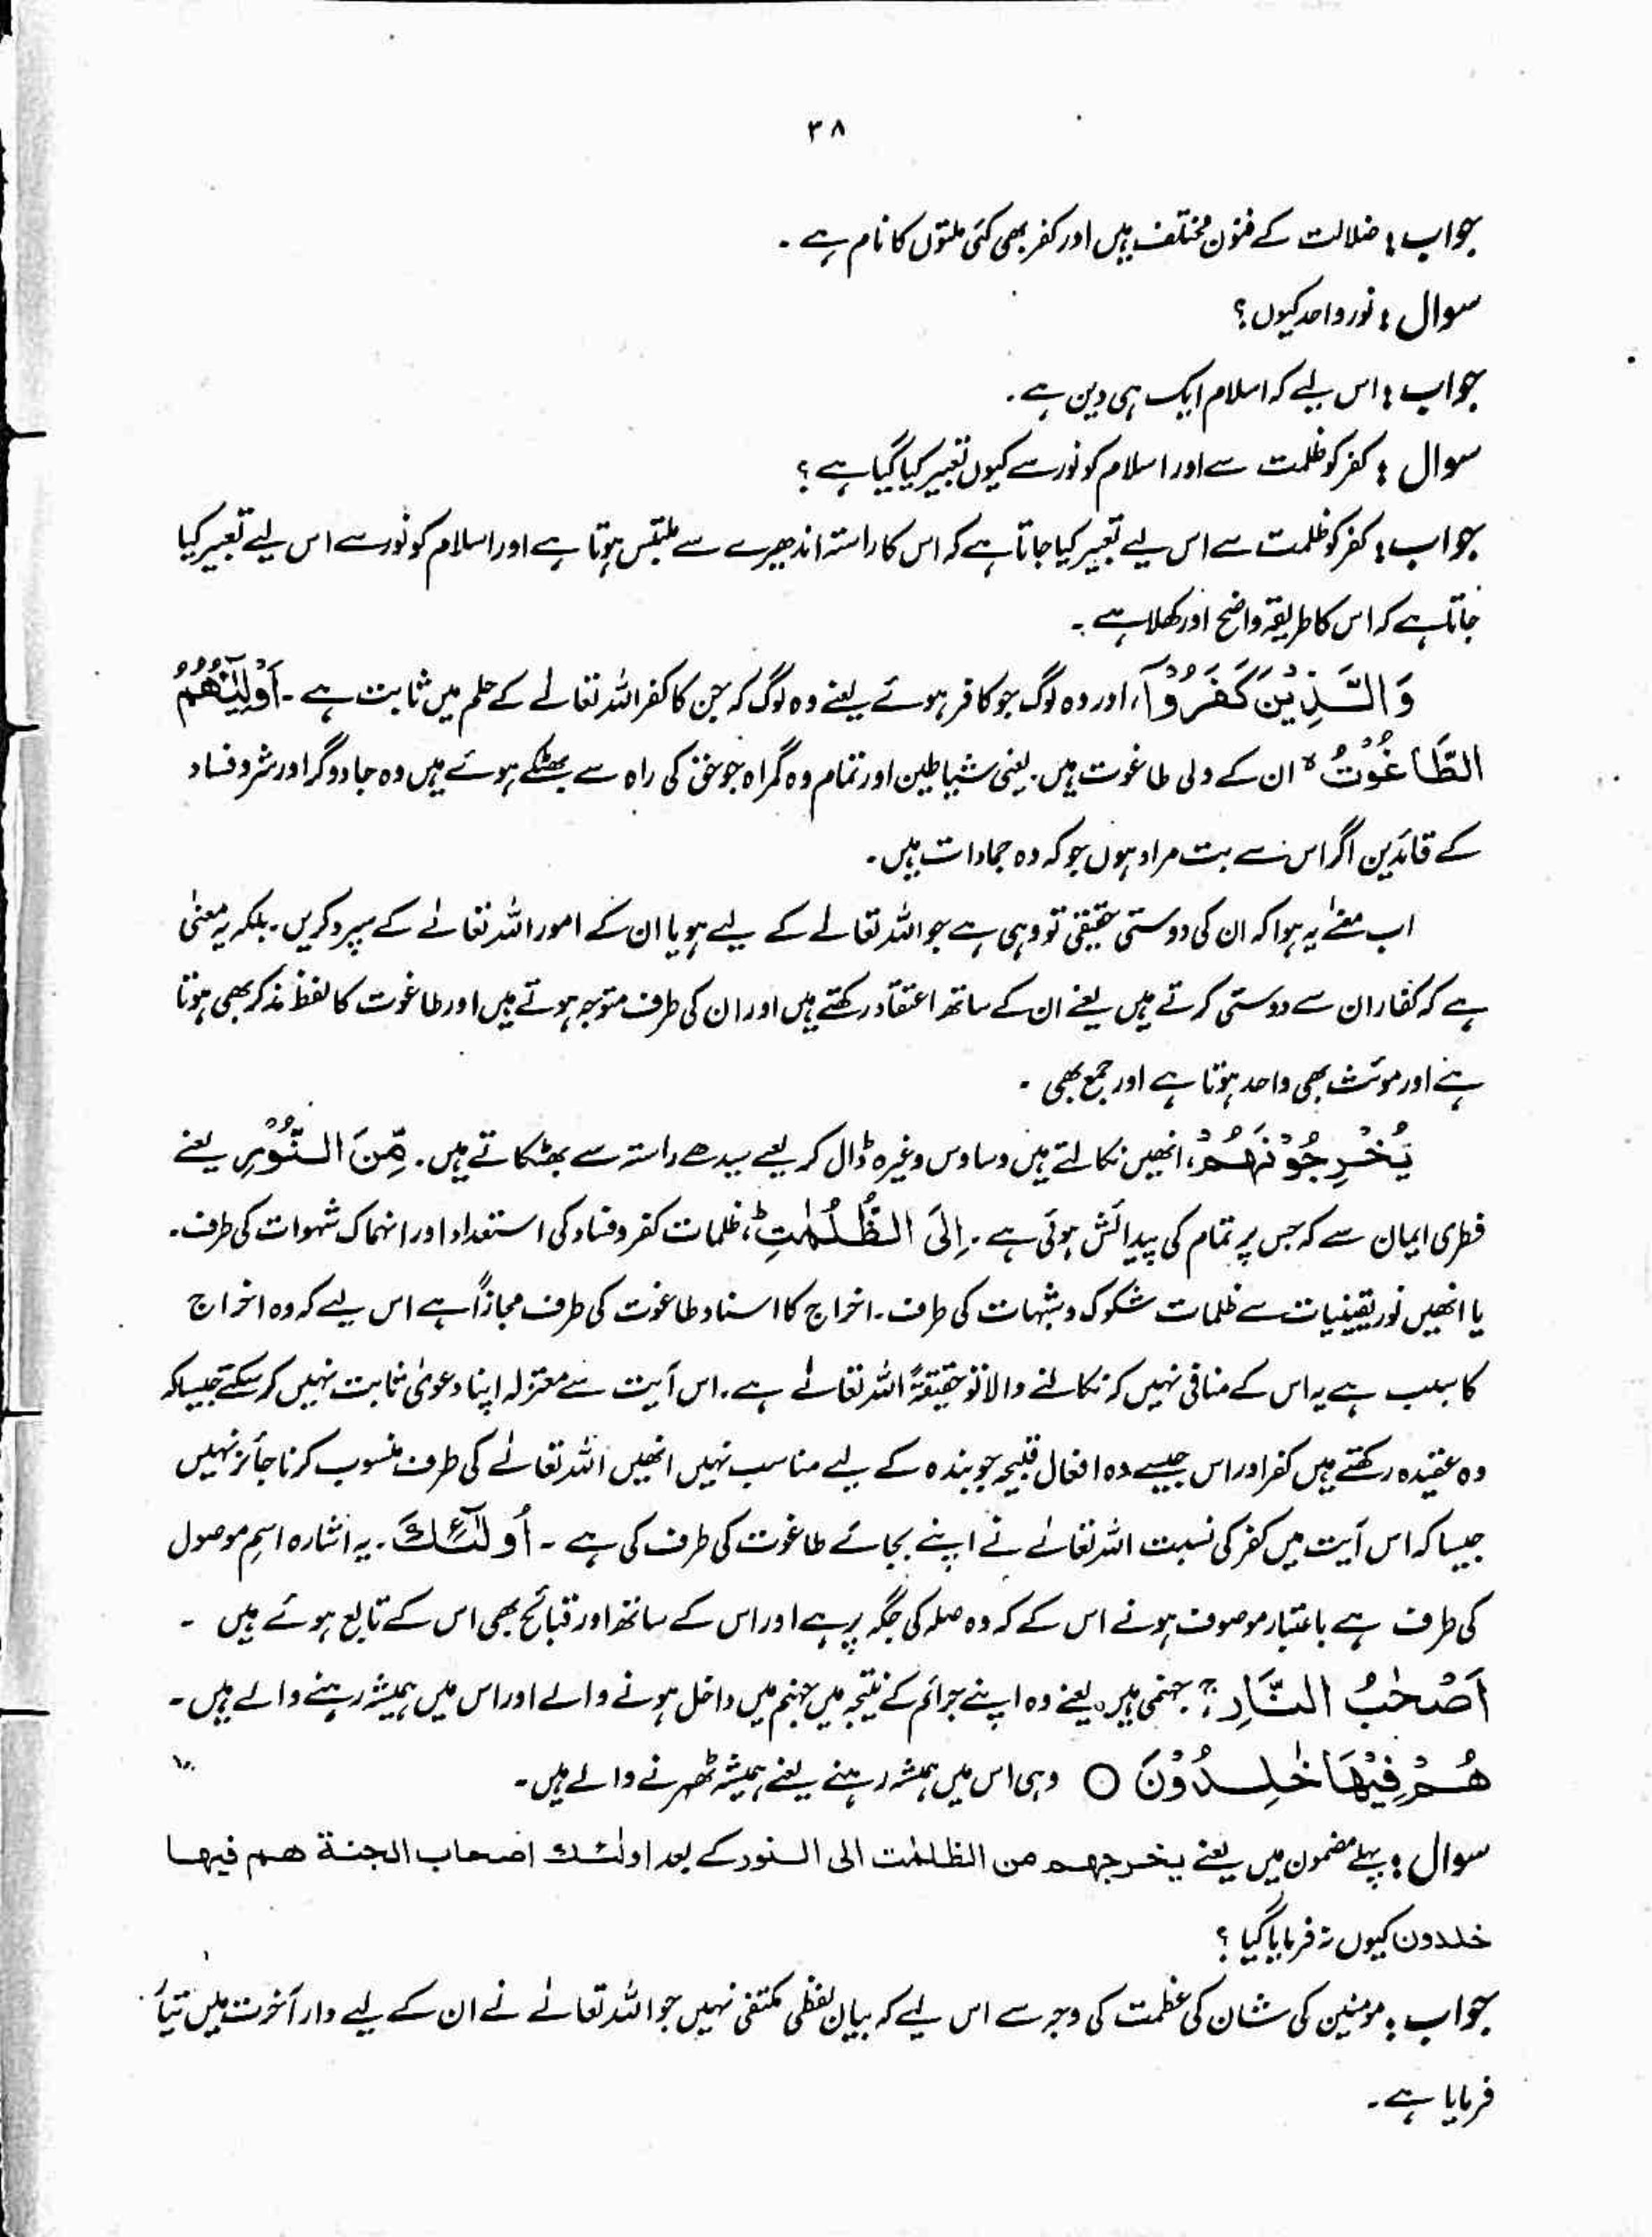 ۳۸
جواب: ضلالت کے فنون مختلف ہیں اور کفر بھی کئی ملتوں کا نام ہے۔
سوال: نور واحد کیوں؟
جواب: اس لیے کہ اسلام ایک ہی دین ہے۔
سوال: کفر کو ظلمت سے اور اسلام کو نور سے کیوں تعبیر کیا گیا ہے؟
جواب: کفر کو ظلمت سے اس لیے تعبیر کیا جاتا ہے کہ اس کا راستہ اندھیرے سے ملتبس ہوتا ہے اور اسلام کو نور سے اس لیے تعبیر کیا
جاتا ہے کہ اس کا طریقہ واضح اور کھلا ہے۔
وَالَّذِیْنَ کَفَرُوْآ، اور وہ لوگ جو کافر ہوئے یعنے وہ لوگ کہ جن کا کفر اللہ تعالےٰ کے علم میں ثابت ہے۔ اَوْلِیٰٓئُهُمُ
الطَّاغُوْتُ ۙ ان کے ولی طاغوت ہیں۔ یعنی شیاطین اور تمام وہ گمراہ جو حق کی راہ سے بھٹکے ہوئے ہیں وہ جادوگر اور شر و فساد
کے قائدین اگر اس سے بت مراد ہوں جو کہ وہ جمادات ہیں۔
اب معنےٰ یہ ہوا کہ ان کی دوستی حقیقی تو وہی ہے جو اللہ تعالےٰ کے لیے ہو یا ان کے امور اللہ تعالےٰ کے سپرد کریں۔ بلکہ یہ معنیٰ
ہے کہ کفار ان سے دوستی کرتے ہیں یعنے ان کے ساتھ اعتقاد رکھتے ہیں اور ان کی طرف متوجہ ہوتے ہیں اور طاغوت کا لفظ مذکر بھی ہوتا
ہے اور مونث بھی واحد ہوتا ہے اور جمع بھی۔
یُخْرِجُوْنَهُمْ، انھیں نکالتے ہیں وساوس وغیرہ ڈال کر یعنے سیدھے راستہ سے بھٹکاتے ہیں۔ مِّنَ النُّوْرِ یعنے
فطری ایمان سے کہ جس پر تمام کی پیدائش ہوئی ہے۔ اِلَی الظُّلُمٰتِ ؕ، ظلمات کفر و فساد کی استعداد اور انہماک شہوات کی طرف۔
یا انھیں نور یقینیات سے ظلمات شکوک و شبہات کی طرف۔ اخراج کا اسناد طاغوت کی طرف مجازاً ہے اس لیے کہ وہ اخراج
کا سبب ہے یہ اس کے منافی نہیں کہ نکالنے والا تو حقیقۃً اللہ تعالےٰ ہے۔ اس آیت سے معتزلہ اپنا دعویٰ ثابت نہیں کر سکتے جیسا کہ
وہ عقیدہ رکھتے ہیں کفر اور اس جیسے وہ افعال قبیحہ جو بندہ کے لیے مناسب نہیں انھیں اللہ تعالےٰ کی طرف منسوب کرنا جائز نہیں
جیسا کہ اس آیت میں کفر کی نسبت اللہ تعالےٰ نے اپنے بجائے طاغوت کی طرف کی ہے۔ اُولٰٓئِكَ۔ یہ اشارہ اسمِ موصول
کی طرف ہے باعتبار موصوف ہونے اس کے کہ وہ صلہ کی جگہ پر ہے اور اس کے ساتھ اور قبائح بھی اس کے تابع ہوئے ہیں۔
اَصْحٰبُ النَّارِ ۚ جہنمی ہیں۔ یعنے وہ اپنے جرائم کے نتیجہ میں جہنم میں داخل ہونے والے اور اس میں ہمیشہ رہنے والے ہیں۔
هُمْ فِیْهَا خٰلِدُوْنَ ○ وہی اس میں ہمیشہ رہنے یعنے ہمیشہ ٹھہرنے والے ہیں۔
سوال: پہلے مضمون میں یعنے یخرجهم من الظلمٰت الی النور کے بعد اولٰئك اصحاب الجنة هم فیها
خلدون کیوں نہ فرمایا گیا؟
جواب: مومنین کی شان کی عظمت کی وجہ سے اس لیے کہ بیان لفظی مکتفی نہیں جو اللہ تعالےٰ نے ان کے لیے دار آخرت میں تیار
فرمایا ہے۔